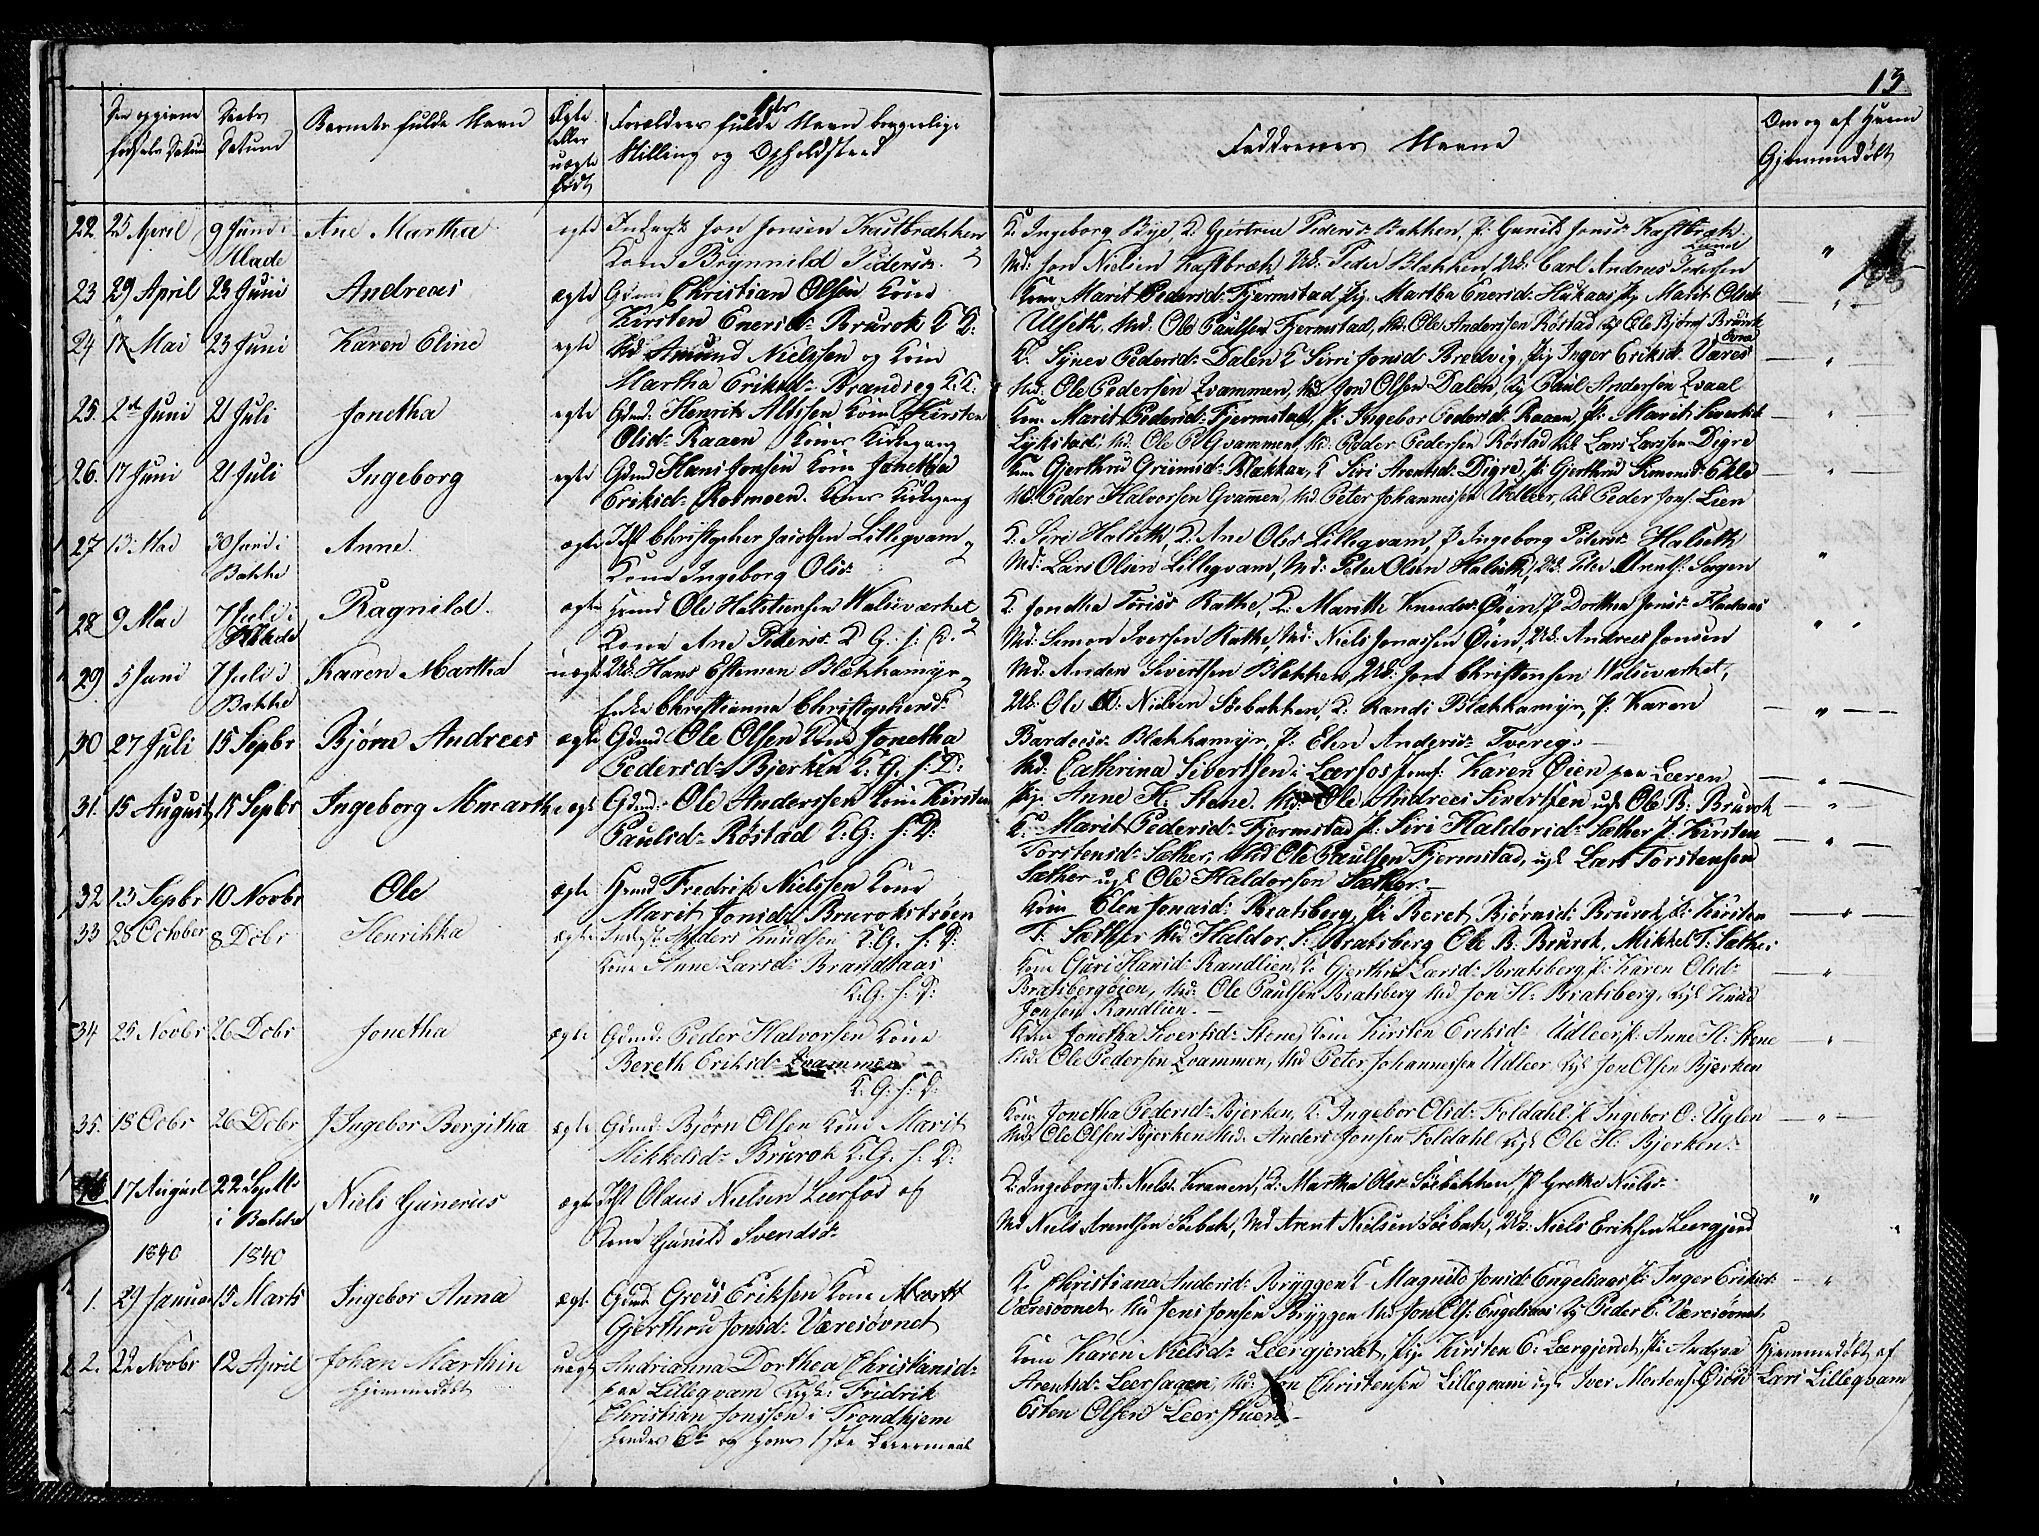 13
Barnets fulde Navn
Ægte eller uægte født
Forældres fulde Navn borgerlige
Stilling og Opholdsted
Faddrenes Navne
Om og af Hvem
Hjemmedøbt
22 25 April 9 Juni i Ane Martha ægte Jon Jonsen
Klade Kone Brynnild Pedersd:
K: Ingeborg Bye, K: Gjertrue Pedersd: Bakken, P: Gunild Jonsd:
Md: Jon Nielsen Md: Peder Blækken Carl Andreas Pedersen
23 29 April 23 Juni Andreas ægte Gmd Christian Olsen Kone
Kirsten Enersd: Brurok
Kone Marit Pedersd: Fjermstad Pig: Martha Enersd: Pig Marit Olsd:
Ulseth, Md: Ole Paulsen Fjermstad, Md: Ole Anderssen Røstad Ole Bjørns: Brurok
24 17 Mai 23 Juni Karen Eline ægte Md Amund Nielssen og Kone
Martha Eriksd:
K: Synev Pedersd: Dalen K Sirri Jonsd: Bredvig, Pig Inger Eriksd: Væres
Md: Ole Pedersen Qvammen, Md Jon Olsen Dalen, Paul Andersen
25. 2d Juni 21 Juli Jonetha ægte Gdmd: Henrik Kone Kirsten
Olsd: Raaen Kones Kirkegang
Kone Marit Pedersd: Fjermstad, P: Ingebor Pedersd: Raaen, P: Marit Sivertsd:
Md: Ole P: Qvammen, Md: Peder Pedersen Røstad Lars Larssen Digre
26. 17 Juni 21 Juli Ingeborg ægte Gdmd Hans Jonsen Kone Jonetha
Eriksd: Kones Kirkegang
Kone Gjerthru Blækkan, K Siri Arentsd: Digre, P: Gjerthru Simonsd:
Md: Peder Halvorsen Qvamen, Md Peter Johannessen Udleer, Peder Jons: Lien
27 13 Mai 30 Juni i Anne ægte Christopher Jacobsen Lillegvam og
Bakke Kone Ingeborg Olsd:
K: Siri Halseth K: Ane Olsd: Lillegvam, P Ingeborg Pedersd: Halseth
Md: Lars Olsen Lillegvam, Md: Peter Olsen Halseth, Peter Arents:
28 9 Mai 7 Juli i Ragnild ægte Ole
Klade Kone Ane Pedersd: K. G. f: D:
K: Jonetha Rathe, K: Marith Knudsd: Øien P Dorthea Jonsd: Flaataas
Md: Simon Iversen Rathe, Md: Niels Jonassen Øien, Andreas Jonsen
29. 5 Juni 7 Juli i Karen Martha uægt Hans Estensen Blækkamyr og
Bakke Enke Christianna Christophersd:
Md: Anders Sivertsen Blækken, Jon Christensen
Ole Nielsen Søebakken, K: Randi Blækkamyr, P: Karen
Bardosd: Blækkamyr, P: Elen Andersd: Tvereg:
30 27 Juli 15 Sepbr Bjørn Andreas ægte Gdmd Ole Olsen Kone Jonetha
Pedersd: Bjerken K: G: f: D:
Md: Catherina Sivertsen i Leerfos Jomf: Karen Øien paa Leeren
Pig: Anne H: Stene. Md: Ole Andreas Siverssen ugk Ole B: Brurok
31. 15 August 15 Sepbr Ingeborg ægt Gdmd: Ole Anderssen Kone Kirsten
Paulsd: Røstad K: G: f: D:
K: Marit Pedersd: Fjermstad P: Siri Haldorsd: Sæther P: Kirsten
Torstensd: Sæther, Md Ole Paulsen Fjermstad, ugk Lars Torstensen
Sæther ugk Ole Haldorsen Sæther:
32 13 Sepbr 10 Novbr Ole ægte Fredrik Nielssen Kone
Marit Jonsd: Brurokstrøen K: G: f: D:
Kone Elen Jonasd: Bratsberg, P: Beret Bjørnsd: Brurok, P: Kirsten
T: Sæther Md Haldor S: Bratsberg Ole B: Brurok, Mikkel T: Sæther
33 28 October 8 Dcbr Henrikka ægte Anders Knudsen
Kone Anne Larsd: Brandaas
K: G: f: D:
Kone Guri Hansd: Randlien, K: Gjerthru Larsd: Bratsberg P: Karen Olsd:
Bratsbergøien, Md: Ole Paulsen Bratsberg Md Jon H: Bratsberg, Knud
Jonsen Randlien.
34 25 Novbr 26 Dcbr Jonetha ægte Gdmd: Peder Halvorsen Kone
Bereth Eriksd: Qvammen
K: G: f: D:
Kone Jonetha Sivertsd: Stene, Kone Kirsten Eriksd: Udleer, P: Anne H: Stene
Md: Ole Pedersen Qvammen, Md Peter Johannessen Udleer Jon Olsen Bjerken
35. 18 Ocbr 26 Dcbr Ingebor Bergitha ægte Gdmd: Bjørn Olsen Kone Marit
Mikkelsd: Brurok K: G: f: D:
Kone Jonetha Pedersd: Bjerken, K: Ingebor Olsd: Foldahl: P Ingebor O: Uglen
Md: Ole Olsen Bjerken Md: Anders Jonsen Foldahl Ole H: Bjerken:
17 August 22 Septbr Niels Gunerius ægte Olaus Nielsen Leerfos og
i Bakke Kone Gunild Svendsd:
K: Ingeborg A: Nielsd: K: Martha Olsd: Søebakken, P Grethe Nielsd:
Md Niels Arentsen Søebak, Md Arent Nielsen Søebak, Niels Eriksen Leergjerd
1840 1840
1. 29 Januar 15 Marts Ingebor Anna ægte Gdmd Greis Eriksen Kone
Gjerthru Jonsd: Væresøvnet
K: Christiana Andersd: Bryggen K Magnild Jonsd: Engelsaas P: Inger Eriksd:
Væresøvnet Md Jens Jonsen Bryggen Md Jon Ols: Engelsaas Peder E: Væresøvnet
2. 22 Novbr 12 April Johan Marthin uægt Andrianna Dorthea Christiansd:
Hjemmedøbt paa Lillegvam Fridrik
Christian Jonssen i Trondhjem
hendes og hans 1ste Leiermaal
Kone Karen Nielsd: Leergjerdet, Pig Kirsten E: Leergjerdet, P: Andrea
Arentsd: Md: Jon Christensen Lillegvam ugk Iver Mortens:
Esten Olsen
Hjemmedøbt af
Lars Lillegvam